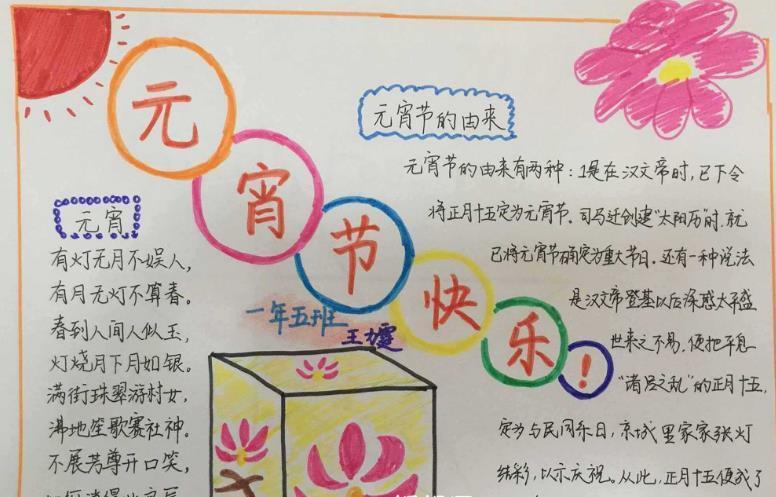 元宵节快乐！
元宵节的由来
元宵节的由来有两种：1是在汉文帝时，已下令
将正月十五定为元宵节。司马迁创建“太阳历”时，就
已将元宵节确定为重大节日。还有一种说法
是汉文帝登基以后深感太平盛
世来之不易，便把平息
“诸吕之乱”的正月十五，
定为与民同乐日，京城里家家张灯
结彩，以示庆祝。从此，正月十五便成了
元宵
有灯无月不娱人，
有月无灯不算春。
春到人间人似玉，
灯烧月下月如银。
满街珠翠游村女，
沸地笙歌赛社神。
不展芳尊开口笑，
一年五班
王